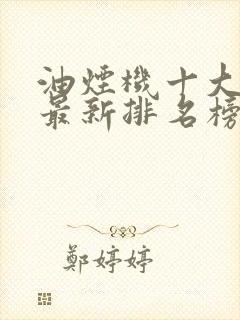 油煙機十大
最新排名榜
鄭婷婷